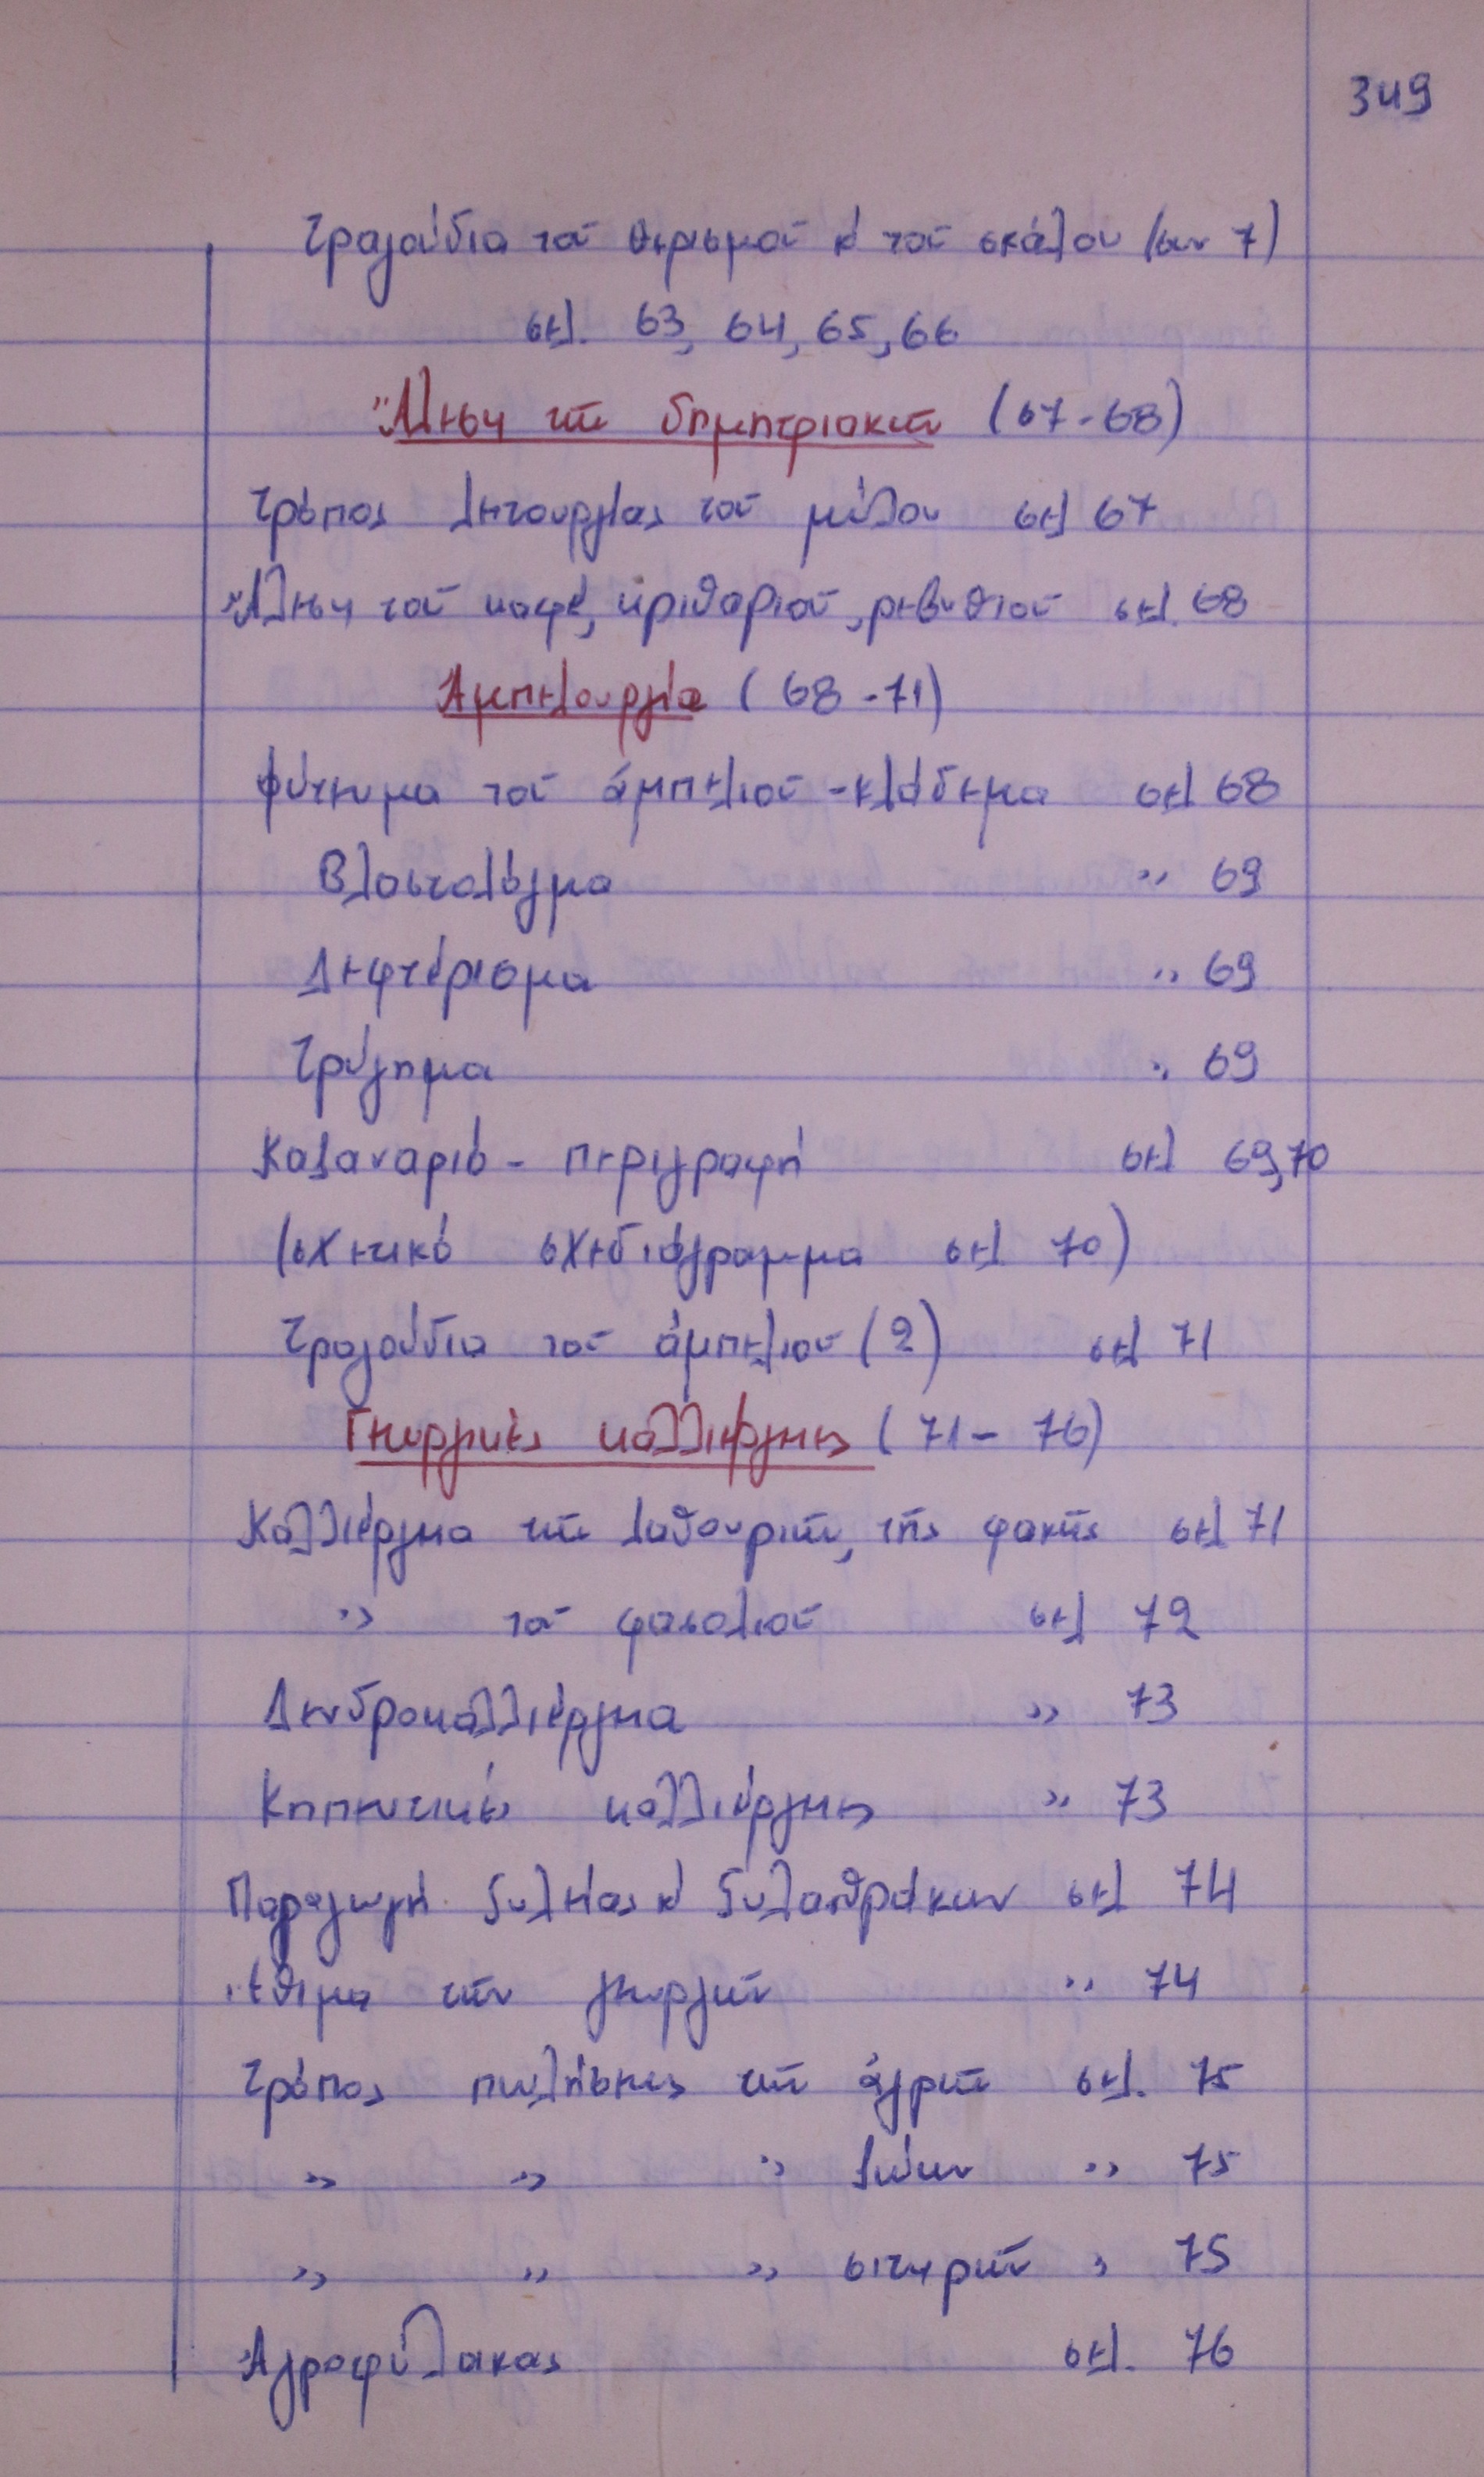 349
Τραγούδια τοῦ θερισμοῦ κ' τοῦ σκάλου (συν 7)
σελ. 63, 64, 65, 66
Ἄλεση τῶν δημητριακῶν (67-68)
Τρόπος λειτουργίας τοῦ μύλου σελ 67
Ἄλεση τοῦ καφέ, κριθαριοῦ, ρεβυθιοῦ σελ. 68
Ἀμπελουργία (68-71)
Φύτευμα τοῦ ἀμπελιοῦ - κλάδεμα σελ 68
Βλαστολόγμα " 69
Δεφτέρισμα " 69
Τρύγημα " 69
Καζαναριό - περιγραφή σελ 69,70
(σχετικό σχεδιάγραμμα σελ 70)
Τραγούδια τοῦ ἀμπελιοῦ (2) σελ 71
Γεωργικές καλλιέργειες (71-76)
Καλλιέργεια τῶν λαθουριῶν, τῆς φακῆς σελ 71
" τοῦ φασολιοῦ σελ 72
Δενδροκαλλιέργεια " 73
Κηπευτικές καλλιέργειες " 73
Παραγωγή ξυλείας κ' ξυλανθράκων σελ 74
Ἔθιμα τῶν γεωργῶν " 74
Τρόπος πωλήσεως τῶν ἀγρῶν σελ. 75
" " " ζώων " 75
" " " σιτηρῶν " 75
Ἀγροφύλακας σελ. 76